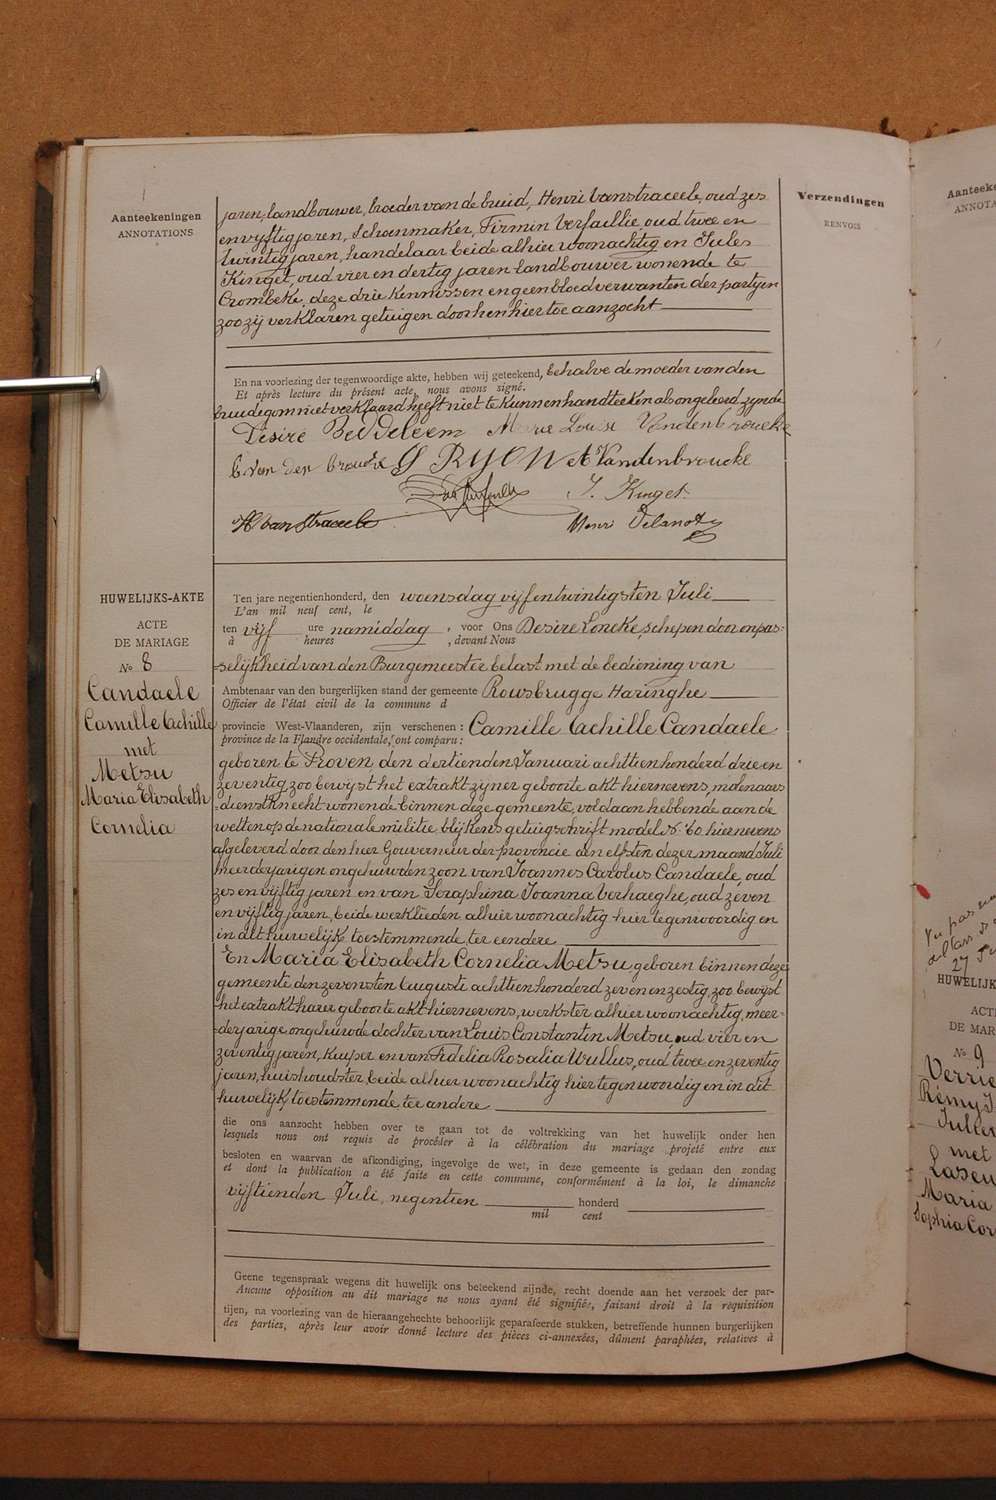 Aanteekeningen
ANNOTATIONS
Verzendingen
RENVOIS
jaren, landbouwer, broeder van de bruid, Henri Vanstraceele, oud zes
en vijftig jaren, schoenmaker, Firmin Verfaillie, oud twee en
twintig jaren, handelaar beide alhier woonachtig en Jules
Kinget, oud vier en dertig jaren landbouwer wonende te
Crombeke, deze drie kennissen en geen bloedverwanten der partijen
zoo zij verklaren getuigen door hen hier toe aanzocht
En na voorlezing der tegenwoordige akte, hebben wij geteekend, behalve de moeder van den
Et après lecture du présent acte, nous avons signé.
bruidegom niet verklaard heeft niet te kunnen handteeken als ongeleerd zijnde
Désiré Beddeleem Marie Louise Vandenbroucke
C. Van den broucke D RYON A Vandenbroucke
J. Kinget
H Vanstraceele Henri Delanote
HUWELIJKS-AKTE
ACTE
DE MARIAGE
No 8
Candaele
Camille Achille
met
Metsu
Maria Elisabeth
Cornelia
Ten jare negentienhonderd, den woensdag vijfentwintigsten Juli
L'an mil neuf cent, le
ten vijf ure namiddag, voor Ons Desiré Loncke, schepen door onpas-
à heures , devant Nous
selijkheid van den Burgemeester belast met de bediening van
Ambtenaar van den burgerlijken stand der gemeente Rousbrugge Haringhe
Officier de l'état civil de la commune d
provincie West-Vlaanderen, zijn verschenen : Camille Achille Candaele
province de la Flandre occidentale, ont comparu :
geboren te Proven den dertienden Januari achttienhonderd drie en
zeventig zoo bewijst het extrakt zijner geboorte akt hiernevens, molenaars
dienstknecht wonende binnen deze gemeente, voldaan hebbende aan de
wetten op de nationale militie, blijkens getuigschrift model No 60 hiernevens
afgeleverd door den heer Gouverneur der provincie den elfsten dezer maand Juli
meerderjarigen ongehuwden zoon van Joannes Carolus Candaele, oud
zes en vijftig jaren en van Seraphina Joanna Verhaeghe, oud zeven
en vijftig jaren, beide werklieden alhier woonachtig hier tegenwoordig en
in dit huwelijk toestemmende, ter eendere
En Maria Elisabeth Cornelia Metsu, geboren binnen deze
gemeente den zevensten Augusti achttienhonderd zeven en zestig, zoo bewijst
het extrakt harer geboorte akt hiernevens, werkster alhier woonachtig, meer-
derjarige ongehuwde dochter van Louis Constantin Metsu oud vier en
zeventig jaren, kuiper en van Fidelia Rosalia Wullus, oud twee en zeventig
jaren, huishoudster, beide alhier woonachtig hier tegenwoordig en in dit
huwelijk toestemmende ter andere
die ons aanzocht hebben over te gaan tot de voltrekking van het huwelijk onder hen
lesquels nous ont requis de procéder à la célébration du mariage projeté entre eux
besloten en waarvan de afkondiging, ingevolge de wet, in deze gemeente is gedaan den zondag
et dont la publication a été faite en cette commune, conformément à la loi, le dimanche
vijftienden Juli, negentien honderd
mil cent
Geene tegenspraak wegens dit huwelijk ons beteekend zijnde, recht doende aan het verzoek der par-
Aucune opposition au dit mariage ne nous ayant été signifiée, faisant droit à la réquisition
tijen, na voorlezing van de hieraangehechte behoorlijk geparafeerde stukken, betreffende hunnen burgerlijken
des parties, après leur avoir donné lecture des pièces ci-annexées, dûment paraphées, relatives à
Aanteeke
ANNOTA
Vu pas
27
HUWELIJK
ACT
DE MAR
No 9
Verrie
Rémy J
Julien
met
Laseu
Maria
Sophia Cor